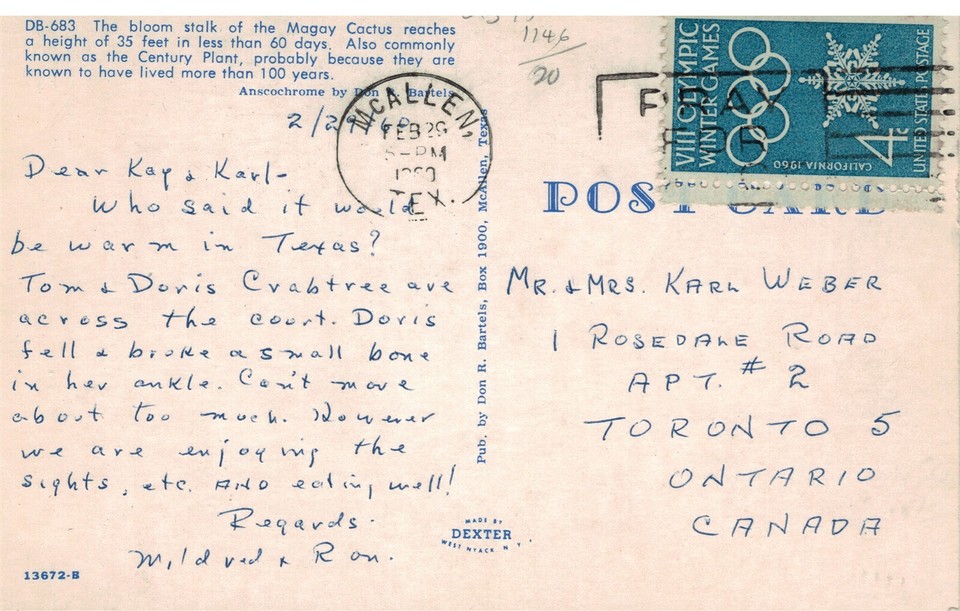 DB-683 The bloom stalk of the Magay Cactus reaches
a height of 35 feet in less than 60 days. Also commonly
known as the Century Plant, probably because they are
known to have lived more than 100 years.
Anscochrome by Don R. Bartels
1146
20
McALLEN,
FEB 29
5-PM
1960
TEX.
PRAY
FOR
VIII OLYMPIC
WINTER GAMES
CALIFORNIA 1960
4c
UNITED STATES POSTAGE
Dear Kay & Karl-
Who said it would
be warm in Texas?
Tom & Doris Crabtree are
across the court. Doris
fell & broke a small bone
in her ankle. Can't move
about too much. However
we are enjoying the
sights, etc. AND eating well!
Regards.
Mildred & Ron.
13672-B
Pub. by Don R. Bartels, Box 1900, McAllen, Texas
MADE BY
DEXTER
WEST NYACK N Y.
POST CARD
MR. & MRS. KARL WEBER
1 ROSEDALE ROAD
APT. # 2
TORONTO 5
ONTARIO
CANADA